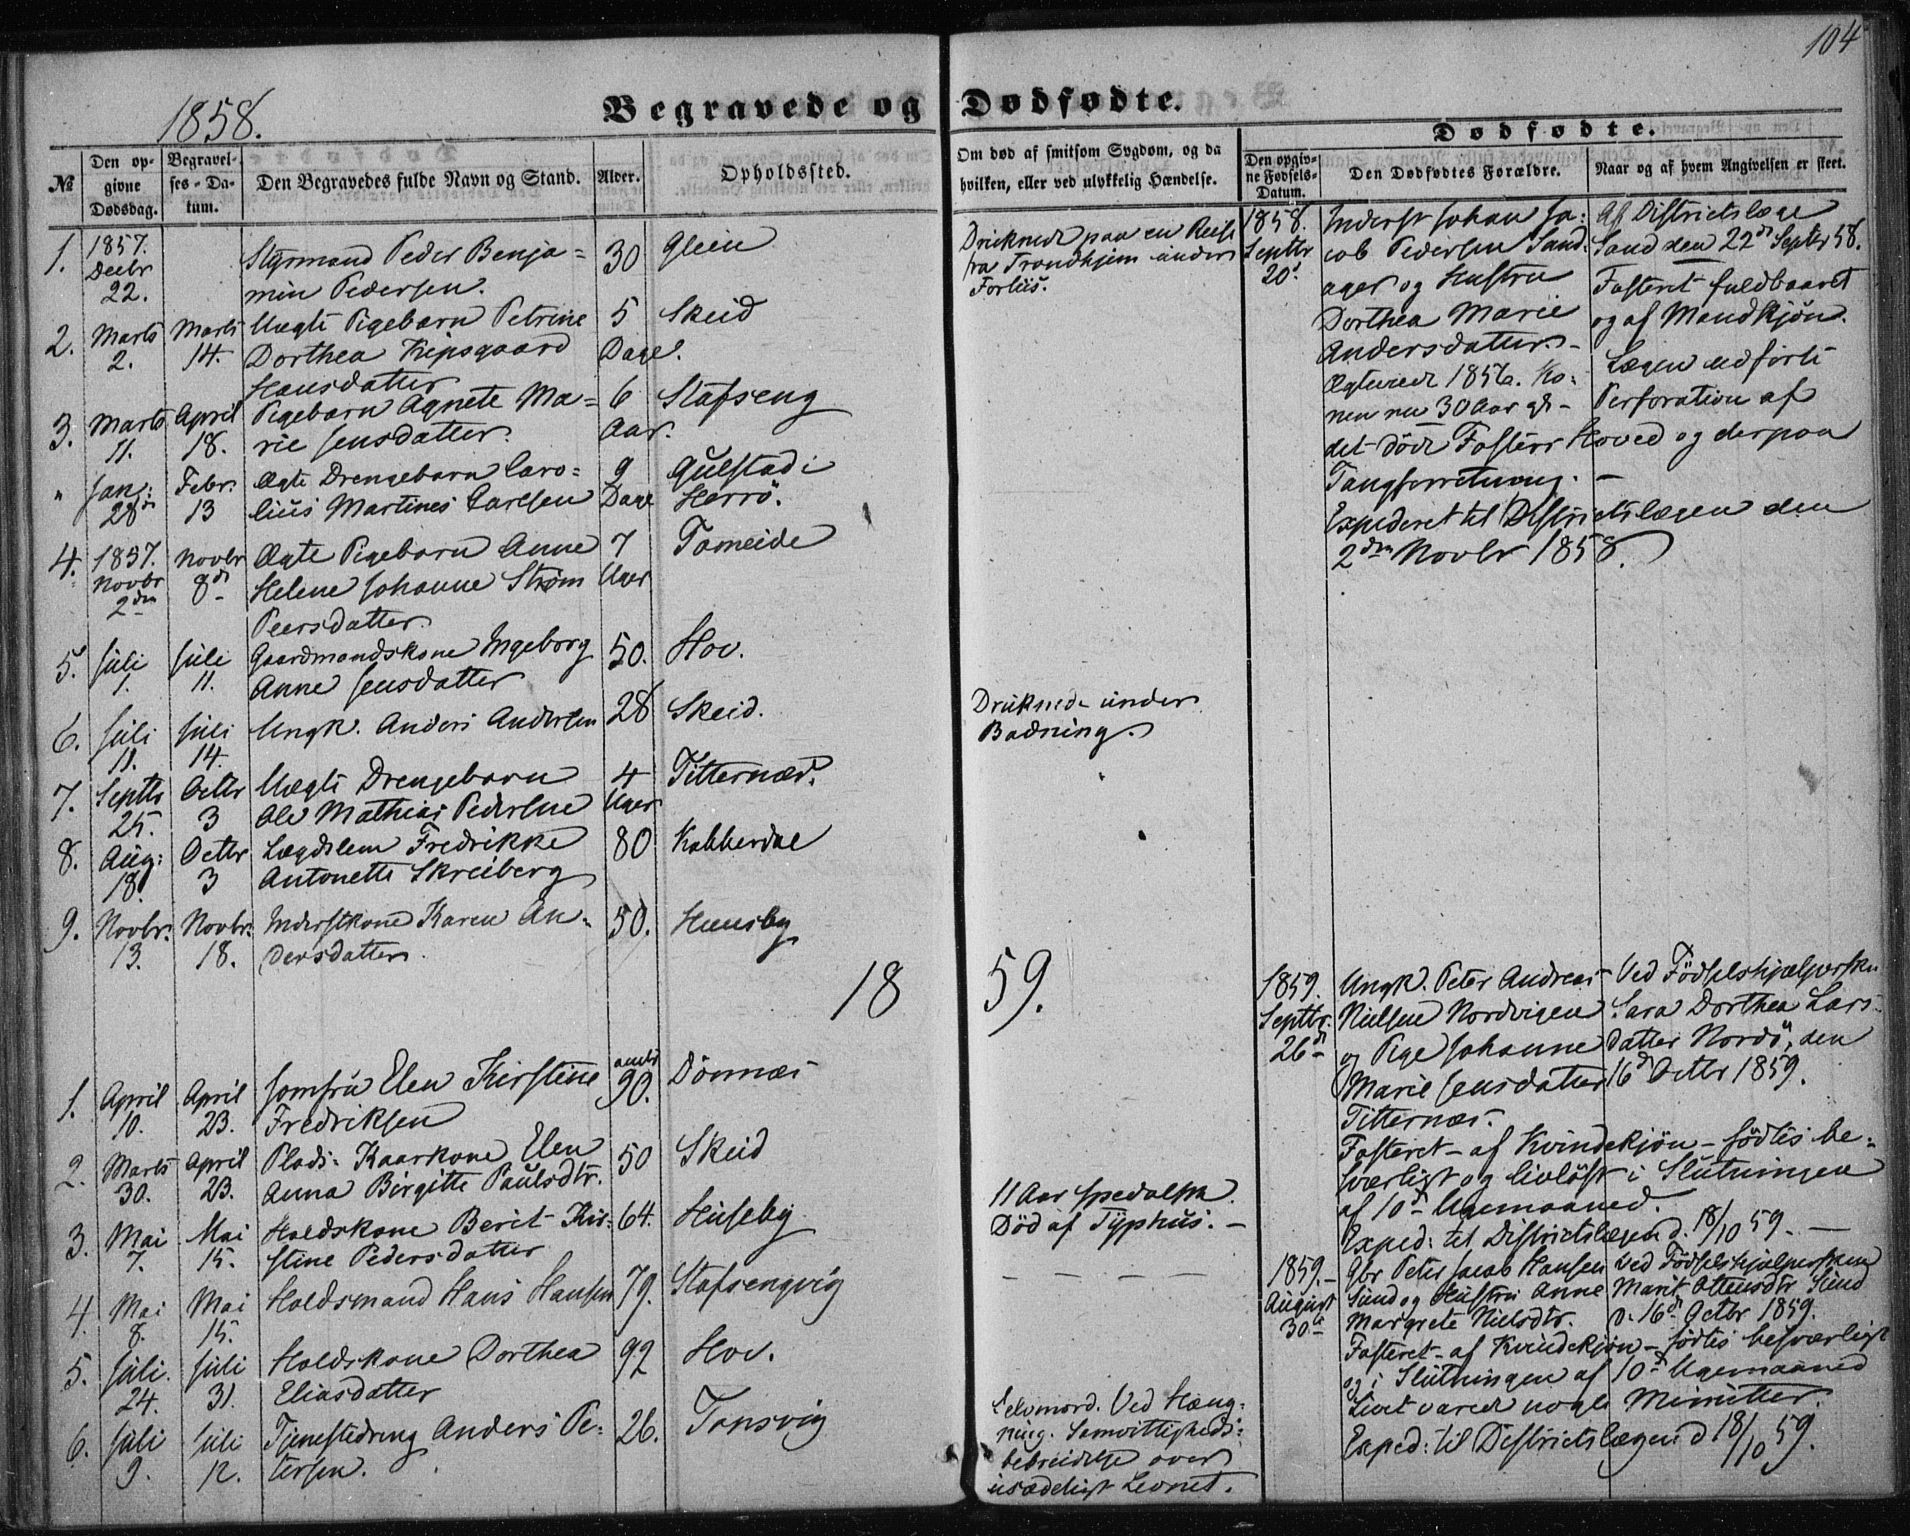 104
1858.
Begravede og Dødfødte.
Dødfødte.
№
Den opgivne Dødsdag.
Begravelses-Datum.
Den Begravedes fulde Navn og Stand.
Alder.
Opholdssted.
Om død af smitsom Sygdom, og da
hvilken, eller ved ulykkelig Hændelse.
Den opgivne Fødsels-Datum.
Den Dødfødtes Forældre.
Naar og af hvem Angivelsen er skeet.
1. 1857. Decbr 22. Styrmand Peder Benja=
min Pedersen. 30 Glein
Druknede paa en Reise
fra Trondhjem under
Forliis.
2. Marts 2. Marts 14. Uægte Pigebarn Petrine
Dorthea Kipsgaard
Hansdatter 5 Dage. Skeid
3. Marts 11. April 18. Pigebarn Agnete Ma=
rie Jensdatter. 6 Aar. Stafseng
" Jan: 28de Febr: 13 Ægte Drengebarn Caro=
lius Martines Carlsen 9 Dage Gulstad i
Herrø.
4. 1857. Novbr 2den Novbr 8de Ægte Pigebarn Anne
Helene Johanne Strøm
Peersdatter. 7 Uger Tomeide
5. Juli 1. Juli 11. Gaardmandskone Ingeborg
Anne Jensdatter 50. Hov.
6. Juli 11. Juli 14. Ungk. Anders Andersen 28 Skeid.
Druknede under
Badning.
7. Septbr 25. Octbr 3 Uægte Drengebarn
Ole Mathias Pedersen 4 Uger Titternæs.
8. Aug: 18. Octbr 3 Lægdslem Fredrikke
Antonette Skreiberg 80 Kobberdal
9. Novbr. 13. Novbr. 18. Inderstkone Karen An=
dersdatter. 50. Hunsby
1858. Septbr 20. Inderst Johan Ja=
cob Pedersen Sand=
ager og Hustru
Dorthea Marie
Andersdatter.-
Ægteviede 1856. Ko=
nen nu 30 Aar gl-
Af Districtslæge
Sand den 22de Septbr 58.
Fosteret fuldbaaret
og af Mandkjøn.
Lægen udførte
Perforation af
det døde Fosters Hoved og derpaa
Tangforretning.-
Expederet til Districtslægen den
2den Novbr 1858.
1859.
1. April 10. April 23. Jomfru Elen Kirstine
Fredriksen 90. Dönnæs
2. Marts 30. April 23. Plads: Kaarkone Elen
Anna Birgitte Paulsdtr. 50 Skeid
3. Mai 7. Mai 15. Holdskone Berit Kir=
stine Pedersdatter 64. Huseby
11 Aar spedalsk.
Død af Typhus.-
4. Mai 8. Mai 15. Holdsmand Hans Hansen 79. Stafsengvig
5. Juli. 24. Juli 31. Holdskone Dorthea
Eliasdatter 92 Hov.
6. Juli 9. Juli 12. Tjenestedreng Anders Pe=
tersen. 26. Tonsvig
Selvmord. Ved Hæng=
ning. Samvittigheds=
bebreidelse over
usædeligt Levnet.
1859. Septbr. 26de Ungk. Peter Andreas
Nielsen Nordvigen
og Pige Johanne
Marie Jensdatter
Titternæs.
Ved Födselshjælpersken
Sara Dorthea Lars=
datter Nordö, den
16de Octbr 1859.
Fosteret af Kvindekjön- födtes be=
sværligt og livlöst i Slutningen
af 10de Ugemaaned.
Exped: til Districtslægen d. 18/10 59.-
1859.- August 30te Gbr Peter Jacob Hansen
Sund og Hustru Anne
Margrete Nielsdtr.
Ved Födselshjælpersken
Marit Ottensdtr Sund
d. 16de Octbr 1859.
Fosteret af Kvindekjön- födtes besværligt
og i Slutningen af 10de Ugemaaned
Livet varede nogle Minutter.
Exped: til Districtslægen d 18/10 59.